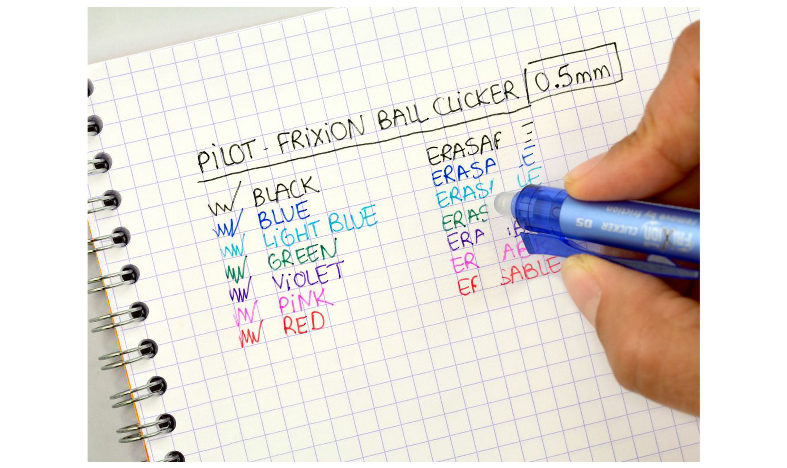 PiLOT - FRiXiON BALL CLiCKER 0.5mm
BLACK
BLUE
LiGHT BLUE
GREEN
ViOLET
PiNK
RED
ERASA E
ERASA E
ERAS LE
ERAS
ERA
ER AB
ER SABLE
CLICKER 05